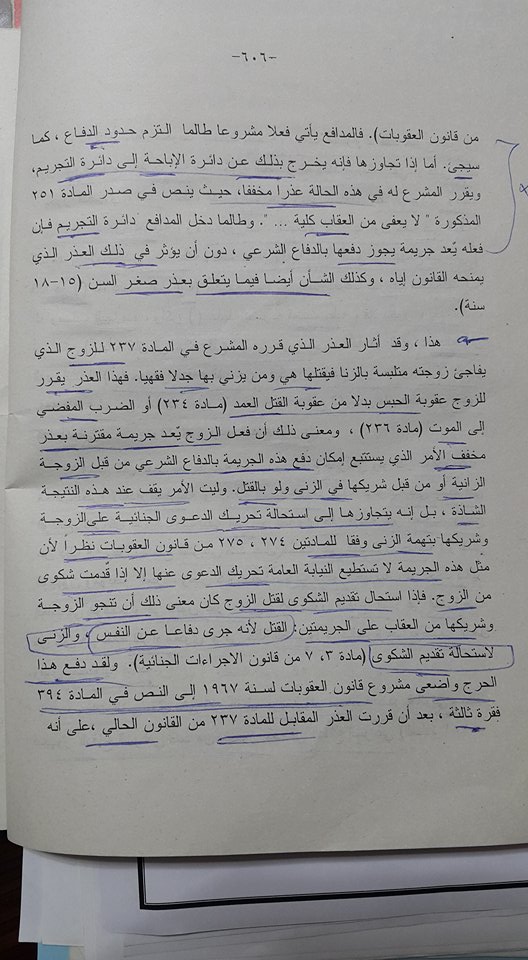 -٦٠٦-
من قانون العقوبات). فالمدافع يأتي فعلا مشروعا طالما التزم حدود الدفاع ، كما
سيجئ. أما إذا تجاوزها فإنه يخرج بذلك عن دائرة الإباحة إلى دائرة التجريم،
ويقرر المشرع له في هذه الحالة عذرا مخففا، حيث ينص في صدر المادة ٢٥١
المذكورة " لا يعفى من العقاب كلية ... ". وطالما دخل المدافع دائرة التجريم فإن
فعله يُعد جريمة يجوز دفعها بالدفاع الشرعي ، دون أن يؤثر في ذلك العذر الذي
يمنحه القانون إياه ، وكذلك الشأن أيضا فيما يتعلق بعذر صغر السن (١٥-١٨
سنة).
هذا ، وقد أثار العذر الذي قرره المشرع في المادة ٢٣٧ للزوج الذي
يفاجئ زوجته متلبسة بالزنا فيقتلها هي ومن يزني بها جدلا فقهيا. فهذا العذر يقرر
للزوج عقوبة الحبس بدلا من عقوبة القتل العمد (مادة ٢٣٤) أو الضرب المفضي
إلى الموت (مادة ٢٣٦) ، ومعنى ذلك أن فعل الزوج يُعد جريمة مقترنة بعذر
مخفف الأمر الذي يستتبع إمكان دفع هذه الجريمة بالدفاع الشرعي من قبل الزوجة
الزانية أو من قبل شريكها في الزنى ولو بالقتل. وليت الأمر يقف عند هذه النتيجة
الشاذة ، بل إنه يتجاوزها إلى استحالة تحريك الدعوى الجنائية على الزوجة
وشريكها بتهمة الزنى وفقا للمادتين ٢٧٤ ، ٢٧٥ من قانون العقوبات نظراً لأن
مثل هذه الجريمة لا تستطيع النيابة العامة تحريك الدعوى عنها إلا إذا قدمت شكوى
من الزوج. فإذا استحال تقديم الشكوى لقتل الزوج كان معنى ذلك أن تنجو الزوجة
وشريكها من العقاب على الجريمتين: القتل لأنه جرى دفاعا عن النفس ، والزنى
لاستحالة تقديم الشكوى (مادة ٣، ٧ من قانون الاجراءات الجنائية). ولقد دفع هذا
الحرج واضعى مشروع قانون العقوبات لسنة ١٩٦٧ إلى النص في المادة ٣٩٤
فقرة ثالثة ، بعد أن قررت العذر المقابل للمادة ٢٣٧ من القانون الحالي ،على أنه